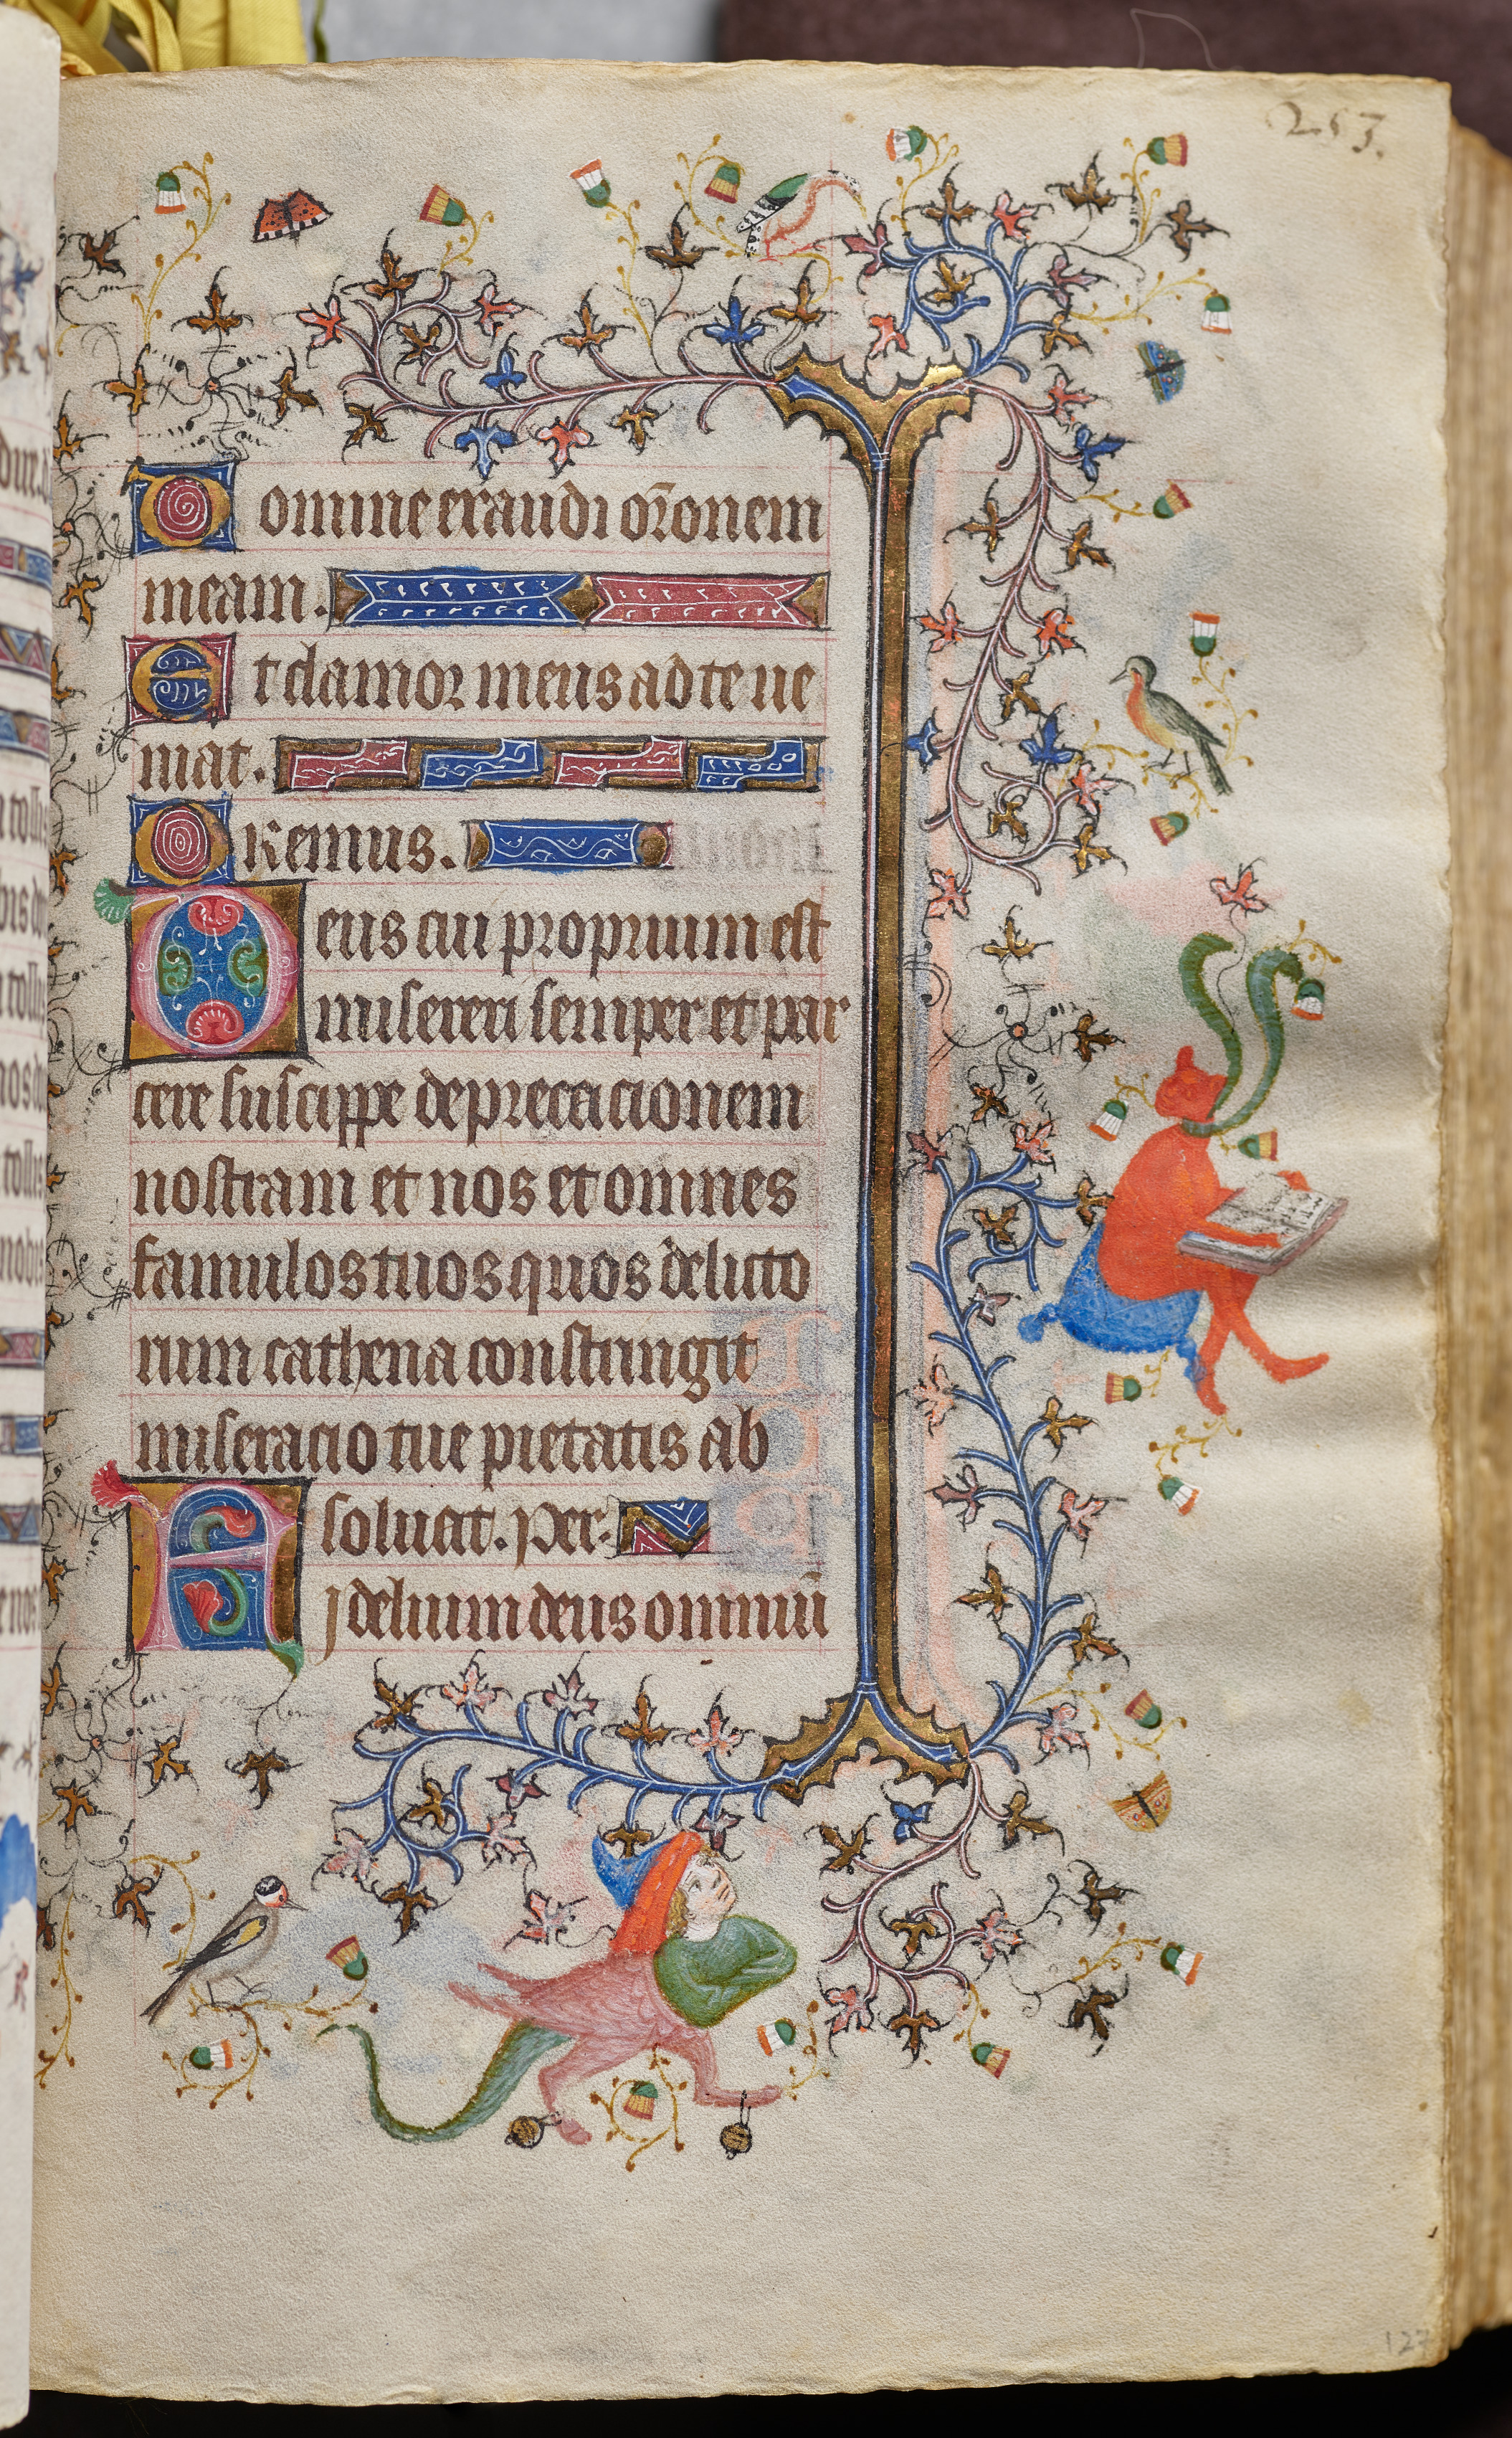 253.
Domine exaudi or̃onem
meam.
Et clamor meus ad te ue
niat.
Oremus.
Deus cui proprium est
misereri semper et par
cere suscippe deprecacionem
nostram et nos et omnes
famulos tuos quos delicto
rum cathena constringit
miseracio tue pietatis ab
soluat. per.
Fidelium deus omniũ
127